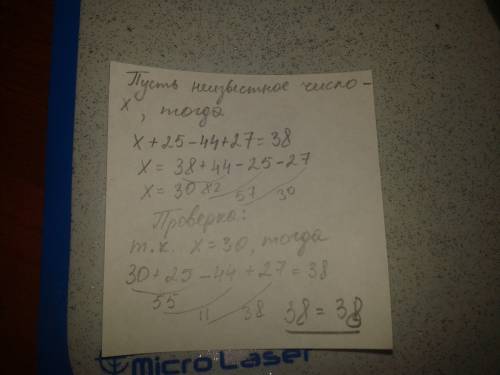 Пусть неизвестное число –
x, тогда
x + 25 – 44 + 27 = 38
x = 38 + 44 – 25 – 27
x = 30 82 57 30
Проверка:
т.к. x = 30, тогда
30 + 25 – 44 + 27 = 38
55 11 38 38 = 38
Micro Laser